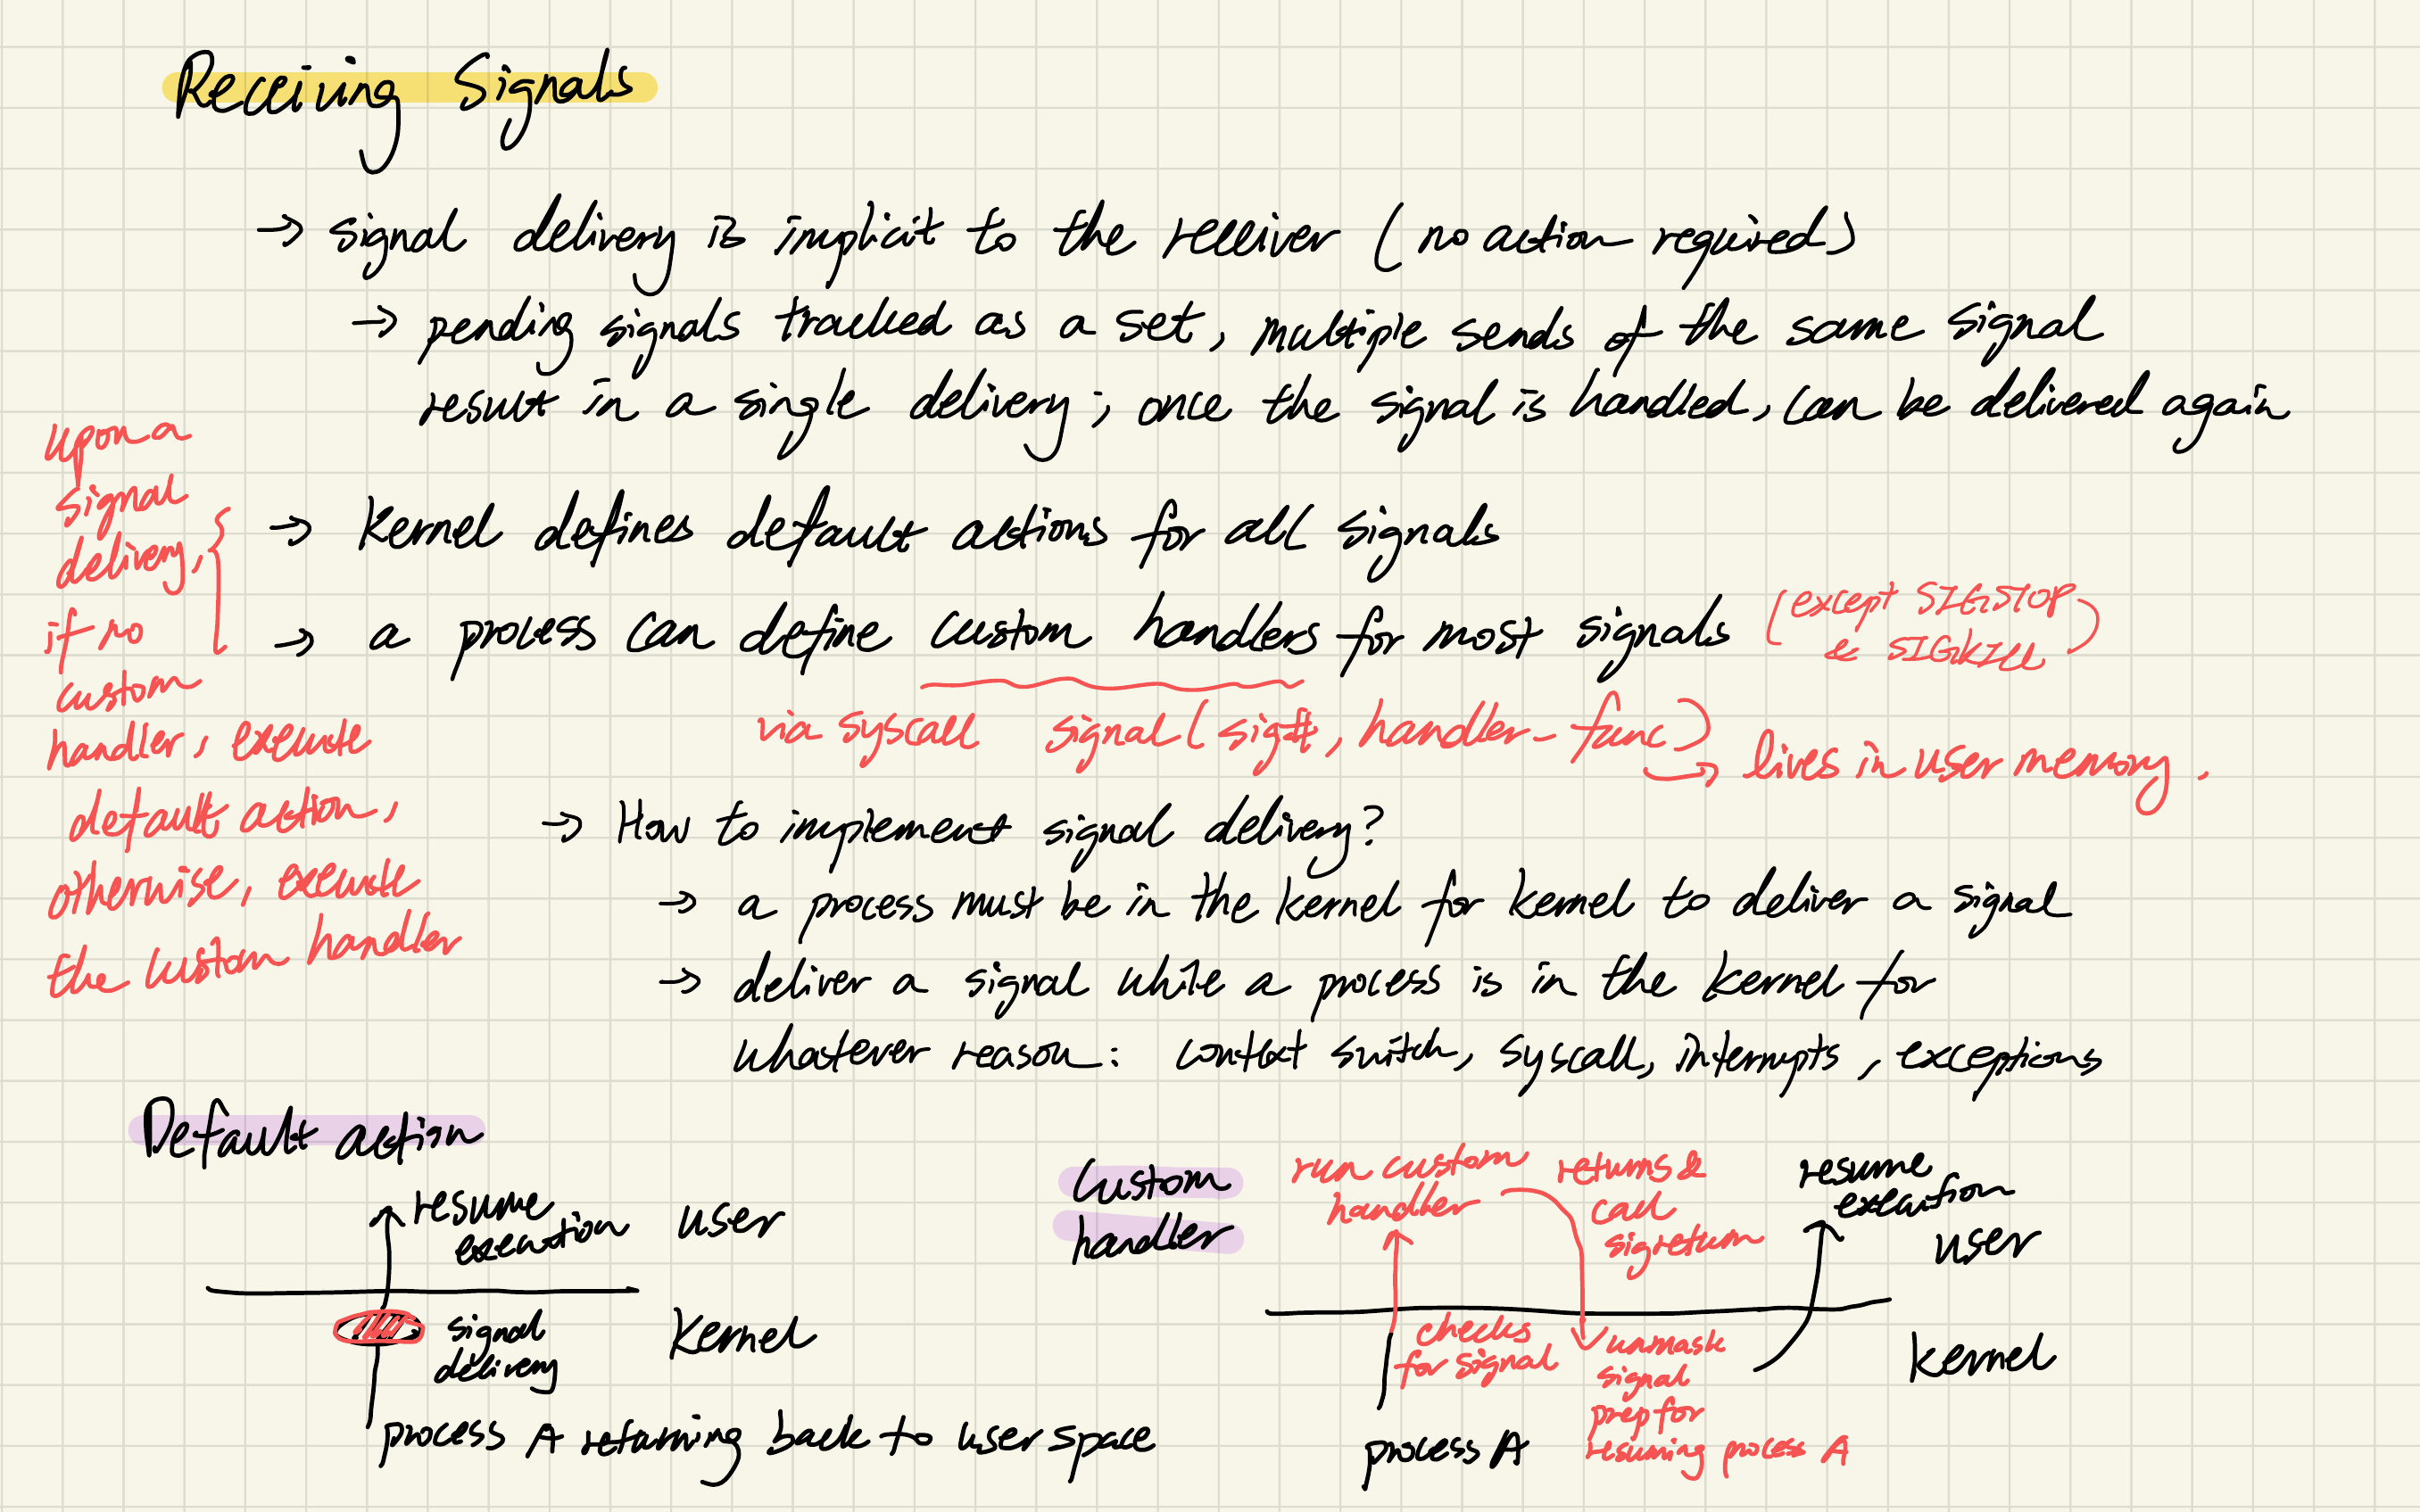 Receiving Signals
→ signal delivery is implicit to the receiver (no action required)
→ pending signals tracked as a set, multiple sends of the same signal
result in a single delivery; once the signal is handled, can be delivered again
upon a
signal
delivery,
if no
custom
handler, execute
default action,
otherwise, execute
the custom handler
→ Kernel defines default actions for all signals
→ a process can define custom handlers for most signals (except SIGSTOP
& SIGKILL)
via syscall signal(sig#, handler-func)
→ lives in user memory.
→ How to implement signal delivery?
→ a process must be in the kernel for kernel to deliver a signal
→ deliver a signal while a process is in the kernel for
whatever reason: context switch, syscall, interrupts, exceptions
Default action
resume
execution
user
signal
delivery
Kernel
process A returning back to user space
Custom
handler
run custom
handler
returns &
call
sigreturn
resume
execution
user
checks
for signal
unmask
signal
prep for
resuming process A
kernel
process A